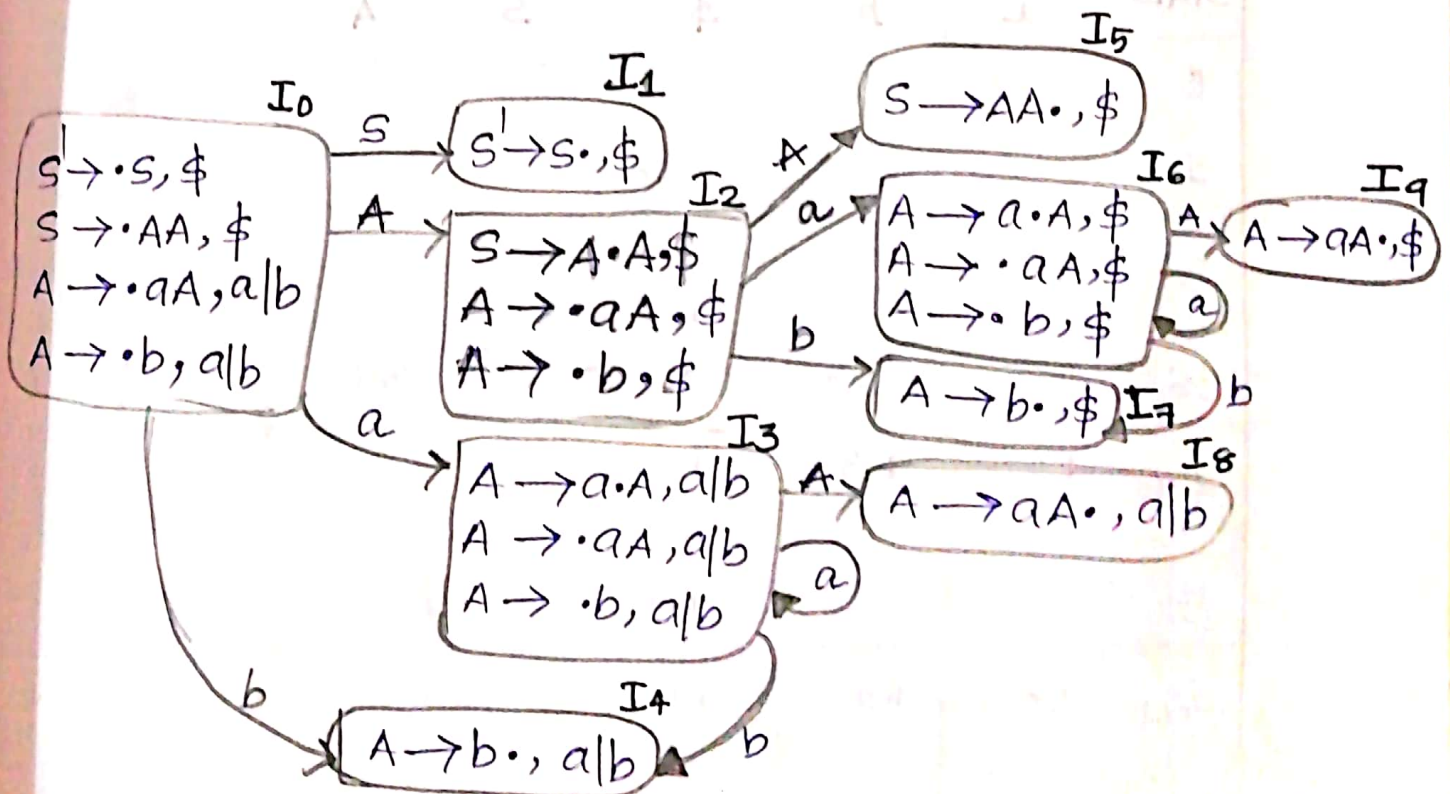 I0
S' → •S, $
S → •AA, $
A → •aA, a|b
A → •b, a|b
S
I1
S' → S•, $
A
I2
S → A•A, $
A → •aA, $
A → •b, $
A
I5
S → AA•, $
a
I6
A → a•A, $
A → •aA, $
A → •b, $
A
I9
A → aA•, $
a
b
b
A → b•, $
I7
a
I3
A → a•A, a|b
A → •aA, a|b
A → •b, a|b
A
I8
A → aA•, a|b
a
b
b
I4
A → b•, a|b